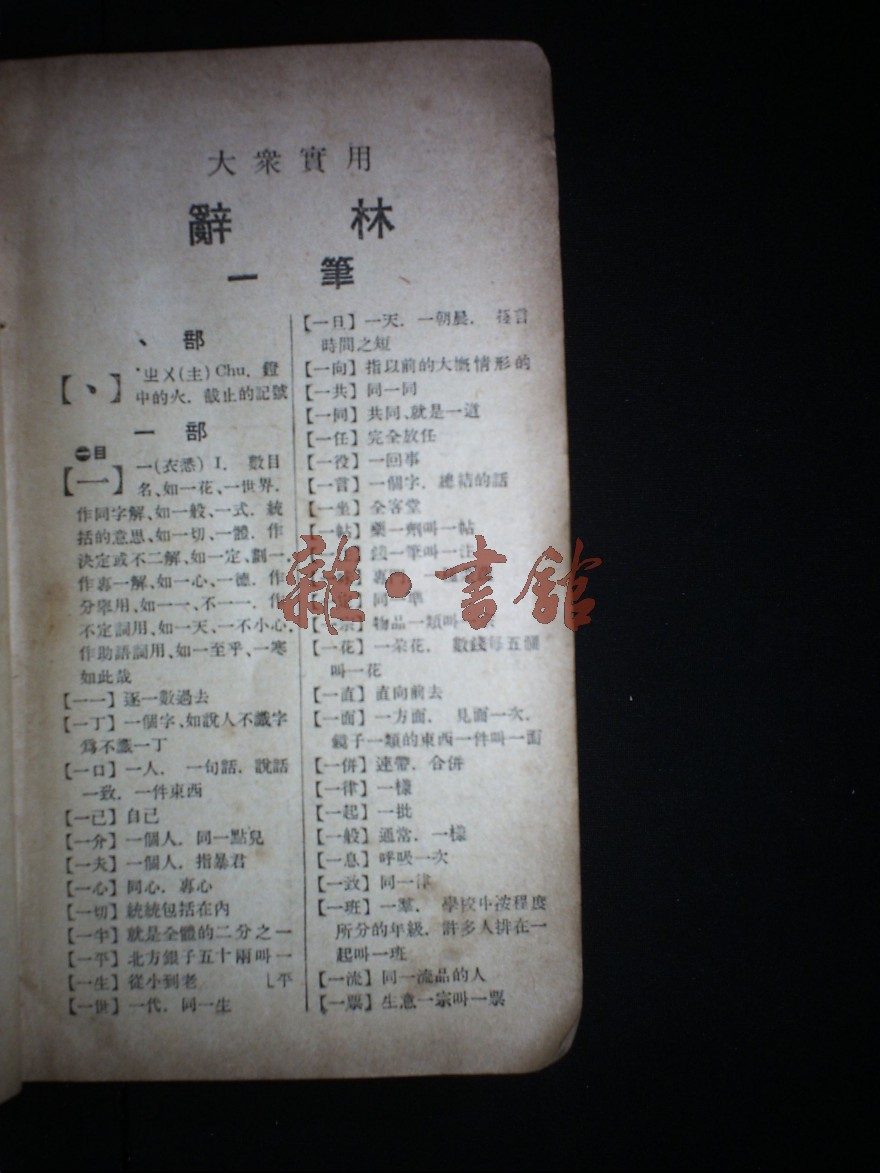 大衆實用
辭林
一筆
、部
【、】
ˋㄓㄨ(主) Chu. 鐙
中的火. 截止的記號
一部
㊀目
【一】
一(衣悉) I. 數目
名、如一花、一世界.
作同字解、如一般、一式. 統
括的意思、如一切、一體. 作
決定或不二解、如一定、劃一.
作專一解、如一心、一德. 作
分舉用、如一一、不一一. 作
不定詞用、如一天、一不小心.
作助語詞用、如一至乎、一寒
如此哉
【一一】逐一數過去
【一丁】一個字、如說人不識字
爲不識一丁
【一口】一人. 一句話. 說話
一致. 一件東西
【一己】自己
【一分】一個人. 同一點兒
【一夫】一個人. 指暴君
【一心】同心. 專心
【一切】統統包括在內
【一半】就是全體的二分之一
【一平】北方銀子五十兩叫一
【一生】從小到老 〔平
【一世】一代. 同一生
【一旦】一天. 一朝晨. 極言
時間之短
【一向】指以前的大概情形的
【一共】同一同
【一同】共同、就是一道
【一任】完全放任
【一役】一回事
【一言】一個字. 總結的話
【一坐】全客堂
【一帖】藥一劑叫一帖
錢一筆叫一注
同一準
物品一類叫一宗
【一花】一朵花. 數錢每五個
叫一花
【一直】直向前去
【一面】一方面. 見面一次.
鏡子一類的東西一件叫一面
【一併】連帶. 合併
【一律】一樣
【一起】一批
【一般】通常. 一樣
【一息】呼吸一次
【一致】同一律
【一班】一羣. 學校中按程度
所分的年級. 許多人排在一
起叫一班
【一流】同一流品的人
【一票】生意一宗叫一票
雜·書館